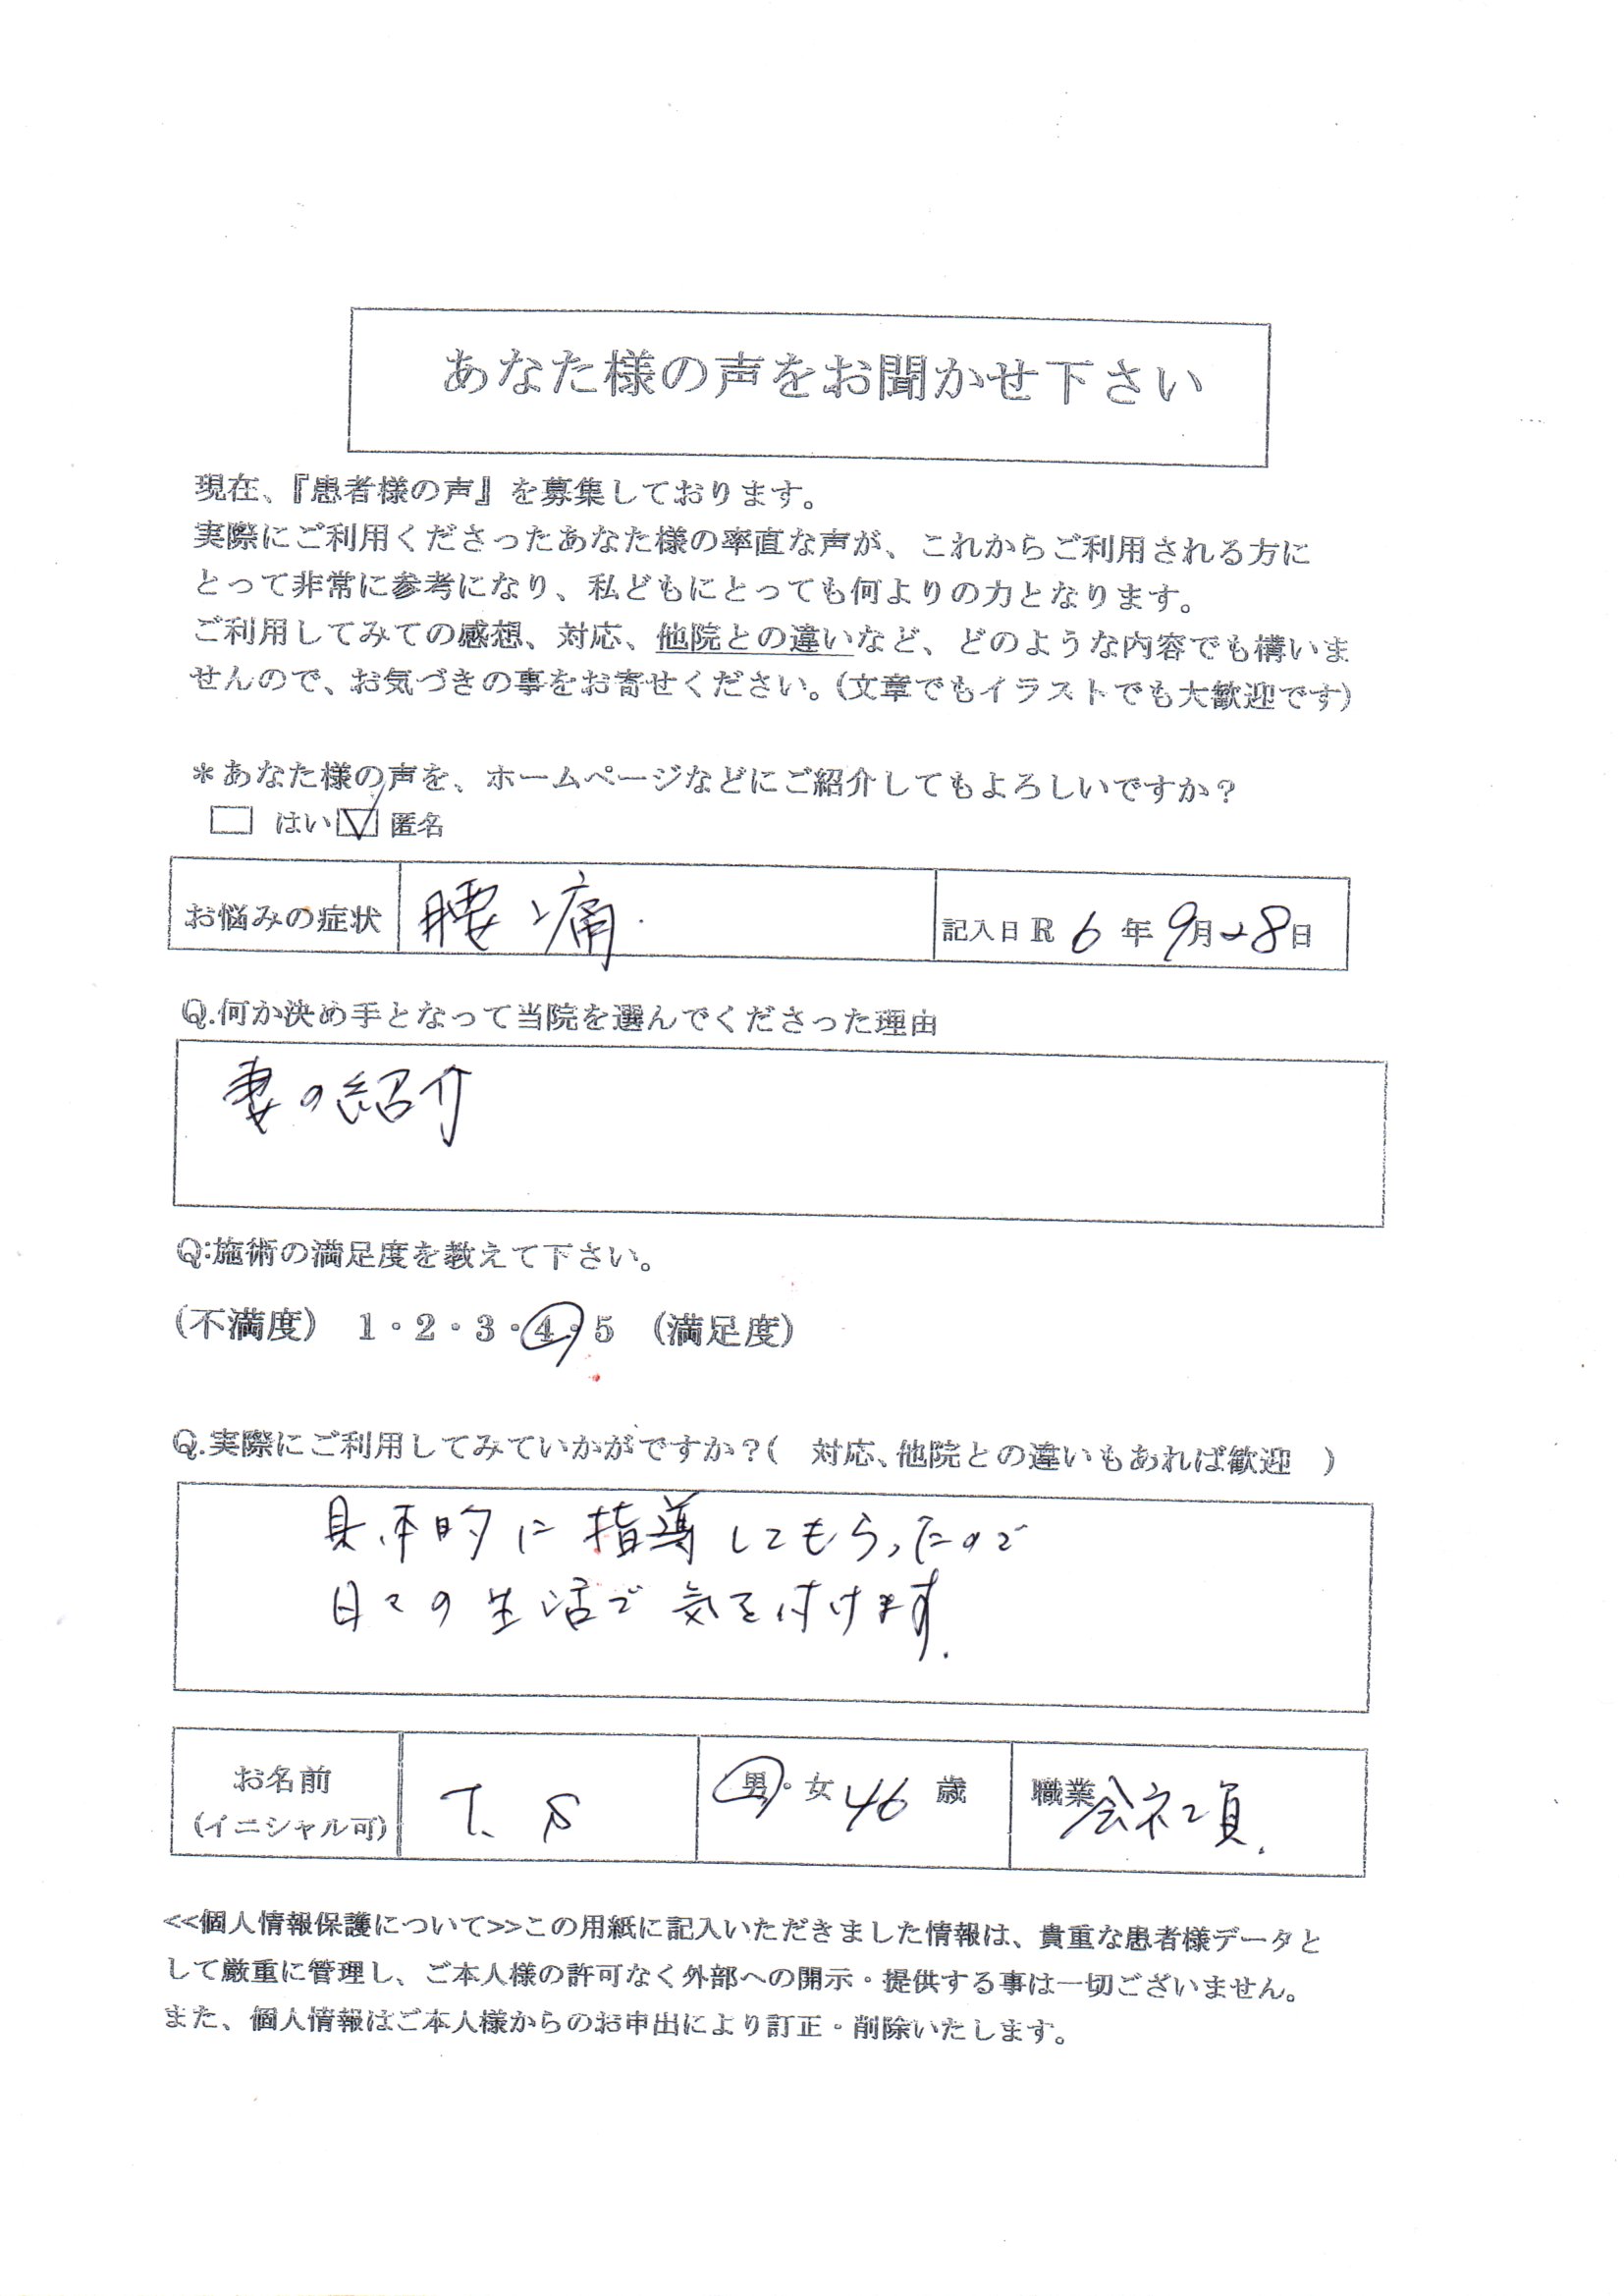 あなた様の声をお聞かせ下さい
現在、『患者様の声』を募集しております。
実際にご利用くださったあなた様の率直な声が、これからご利用される方に
とって非常に参考になり、私どもにとっても何よりの力となります。
ご利用してみての感想、対応、他院との違いなど、どのような内容でも構いま
せんので、お気づきの事をお寄せください。(文章でもイラストでも大歓迎です)
＊あなた様の声を、ホームページなどにご紹介してもよろしいですか？
□ はい ☑ 匿名
お悩みの症状 腰痛. 記入日 R 6 年 9月 28日
Q.何か決め手となって当院を選んでくださった理由
妻の紹介
Q:施術の満足度を教えて下さい。
(不満度) 1・2・3・4・5 (満足度)
Q.実際にご利用してみていかがですか？( 対応、他院との違いもあれば歓迎 )
具体的に指導してもらったので
日々の生活で気を付けます.
お名前 T. S 男・女 46 歳 職業 会社員.
(イニシャル可)
<<個人情報保護について>>この用紙に記入いただきました情報は、貴重な患者様データと
して厳重に管理し、ご本人様の許可なく外部への開示・提供する事は一切ございません。
また、個人情報はご本人様からのお申出により訂正・削除いたします。